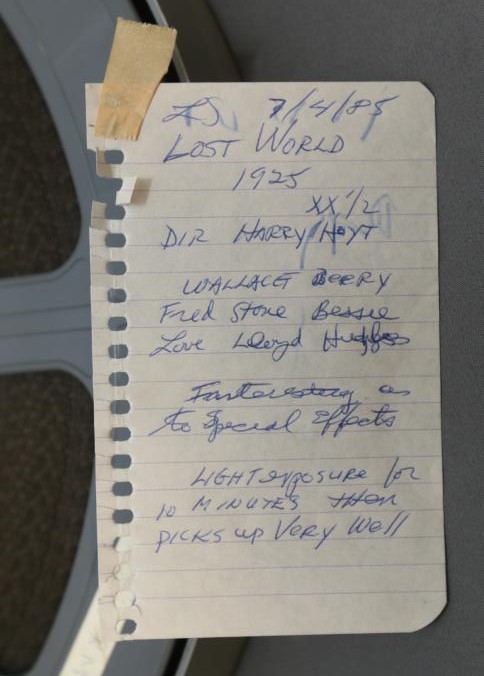 7/4/85
LOST WORLD
1925
XX 1/2
DIR HARRY HOYT
WALLACE BEERY
Fred Stone Bessie
Love Lloyd Hughes
as
to Special Effects
LIGHT exposure for
10 MINUTES then
PICKS up Very Well